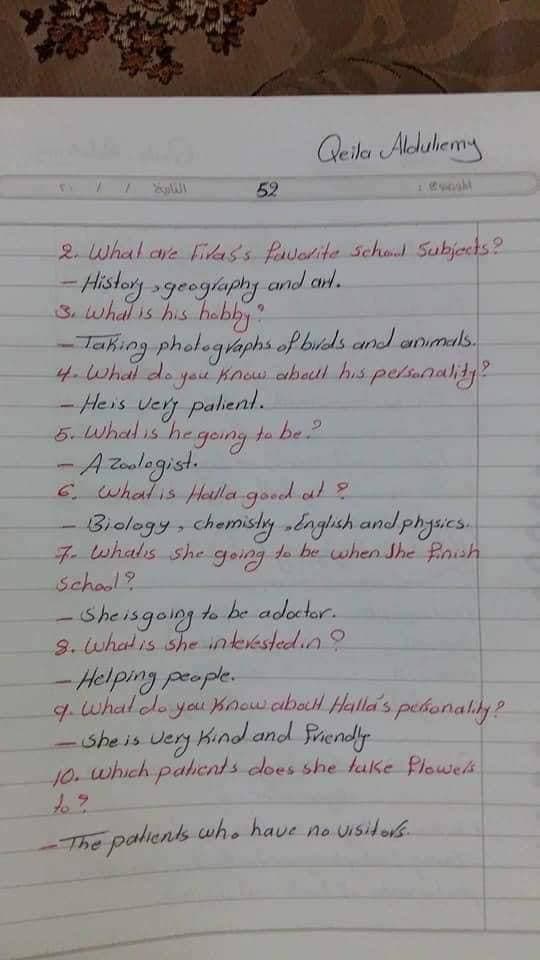 Qeila Alduliemy
٢٠ / / التاريخ 52 الموضوع :
2. What are Firas's favorite school subjects?
- History, geography and art.
3. What is his hobby?
- Taking photographs of birds and animals.
4. What do you know about his personality?
- He is very patient.
5. What is he going to be?
- A zoologist.
6. What is Halla good at?
- Biology, chemistry, English and physics.
7. What is she going to be when she finish
school?
- She is going to be a doctor.
8. What is she interested in?
- Helping people.
9. What do you know about Halla's personality?
- She is very kind and friendly
10. Which patients does she take flowers
to?
- The patients who have no visitors.